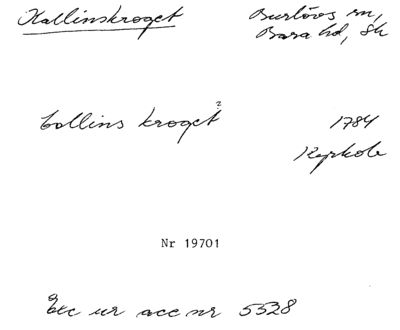 Kallinskroget Burlövs sn,
Bara hd, Sk
Collins kroget? 1784
Nr 19701
Exc ur acc nr 5528